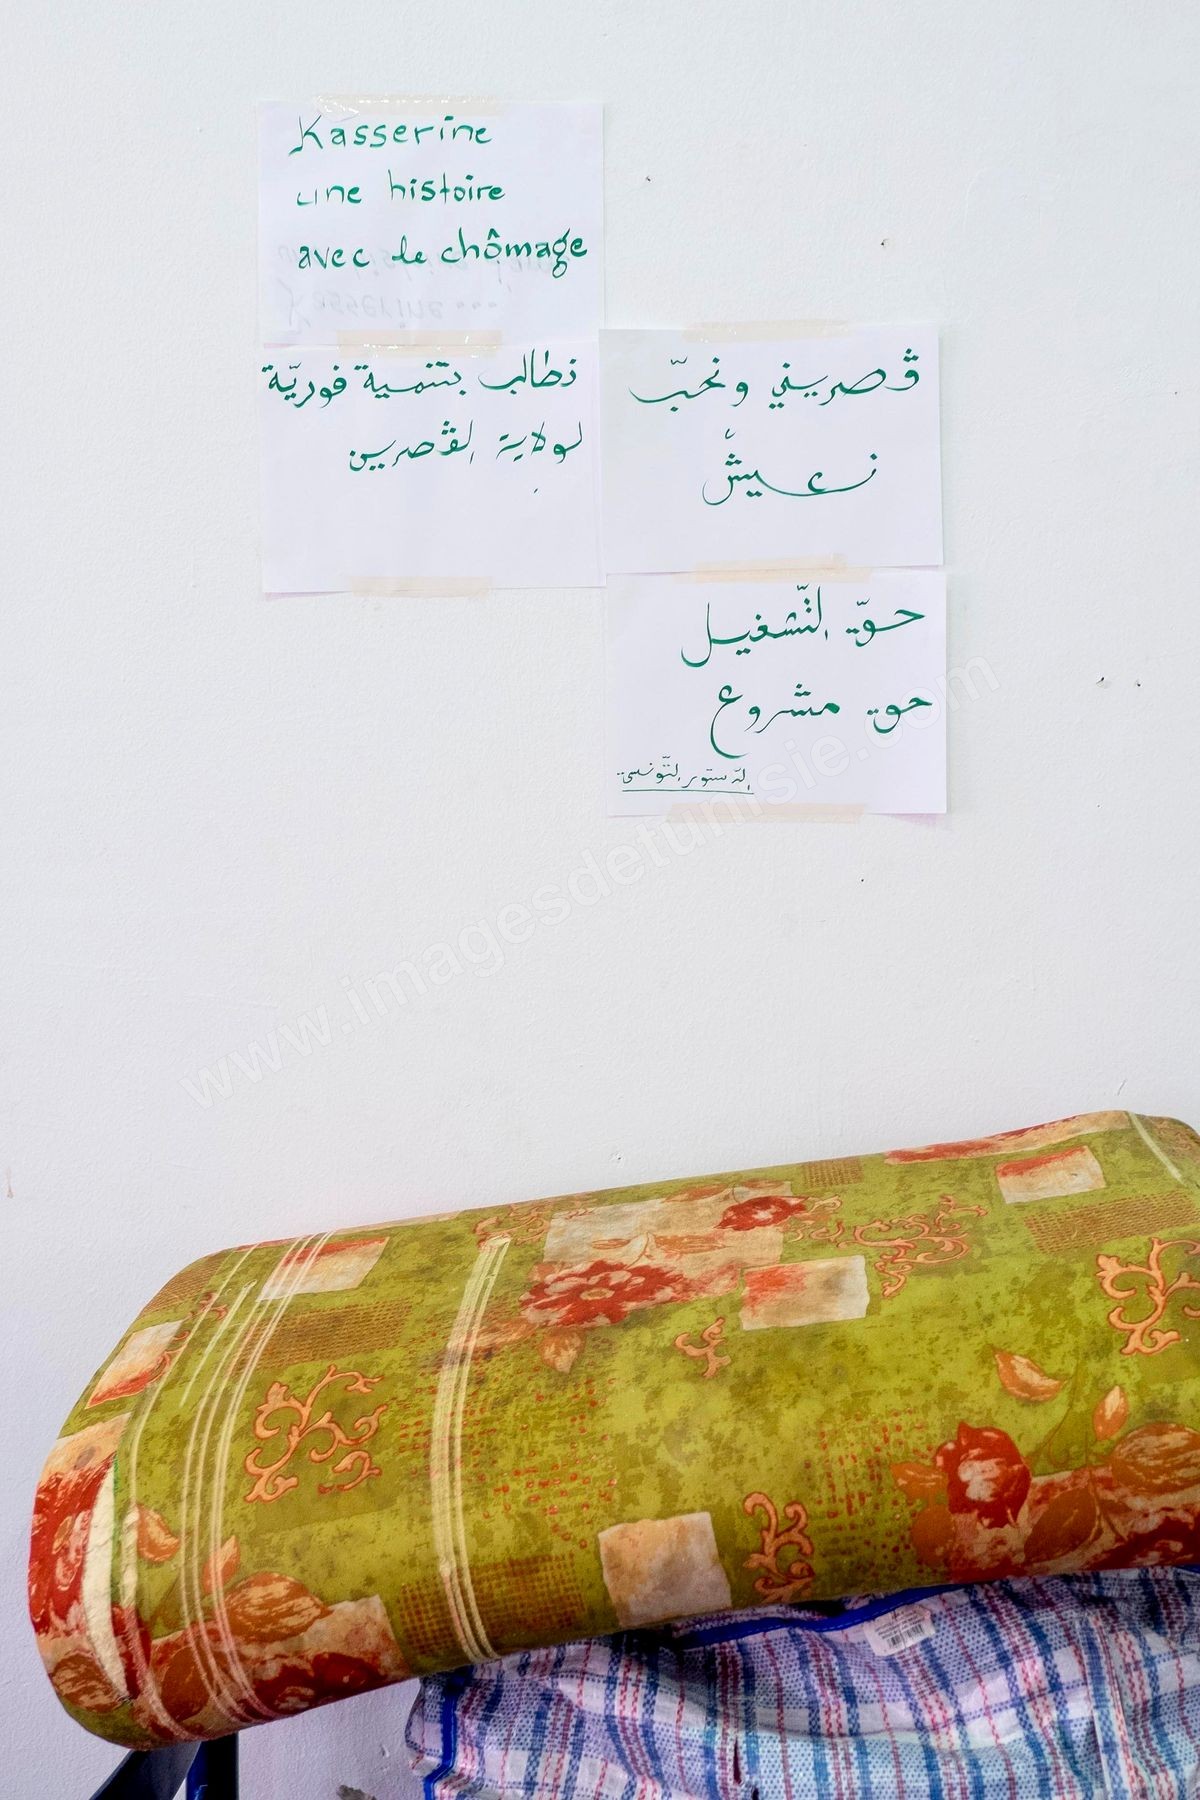 Kasserine
une histoire
avec le chômage
نطالب بتنمية فوريّة
لولاية الڨصرين
ڨصريني ونحبّ
نعيش
حقّ التّشغيل
حق مشروع
الدستور التّونسي
www.imagesdetunisie.com